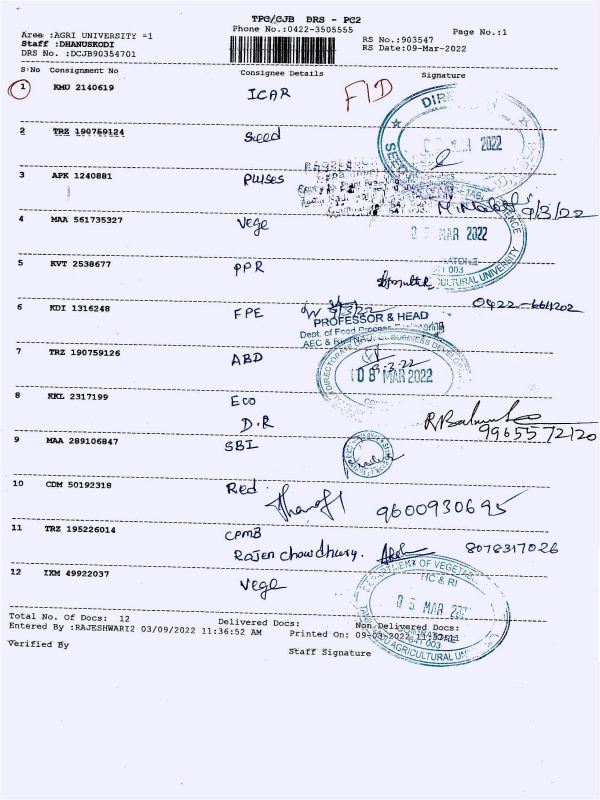 TPC/CJB DRS - PC2
Phone No.:0422-3505555
Page No.:1
Area :AGRI UNIVERSITY =1
RS No.:903547
Staff :DHANUSKODI
RS Date:09-Mar-2022
DRS No. :DCJB90354701
S.No Consignment No Consignee Details Signature
1 KMU 2140619 ICAR FTD
DIRE
2 TRZ 190759124 Seed
MAR 2022
3 APK 1240881 Pulses
9/3/22
4 MAA 561735327 Vege
MAR 2022
5 KVT 2538677 PPR
CULTURAL UNIVERSITY
0422-
6 KDI 1316248 FPE
9/3/22
PROFESSOR & HEAD
Dept. of Food Process Engineering
7 TRZ 190759126 ABD
08 MAR 2022
8 KKL 2317199 Eco
D.R
9965572120
9 MAA 289106847 SBI
10 CDM 50192318 Red
9600930695
11 TRZ 195226014 CPMB
Rajen Chowdhury. 8078317026
12 IXM 49922037 Vege
DEPARTMENT OF VEGETAB
HC & RI
MAR 202
641 003
AGRICULTURAL UN
Total No. Of Docs: 12 Delivered Docs: Non Delivered Docs:
Entered By :RAJESHWARI2 03/09/2022 11:36:52 AM Printed On: 09-03-2022
Verified By Staff Signature